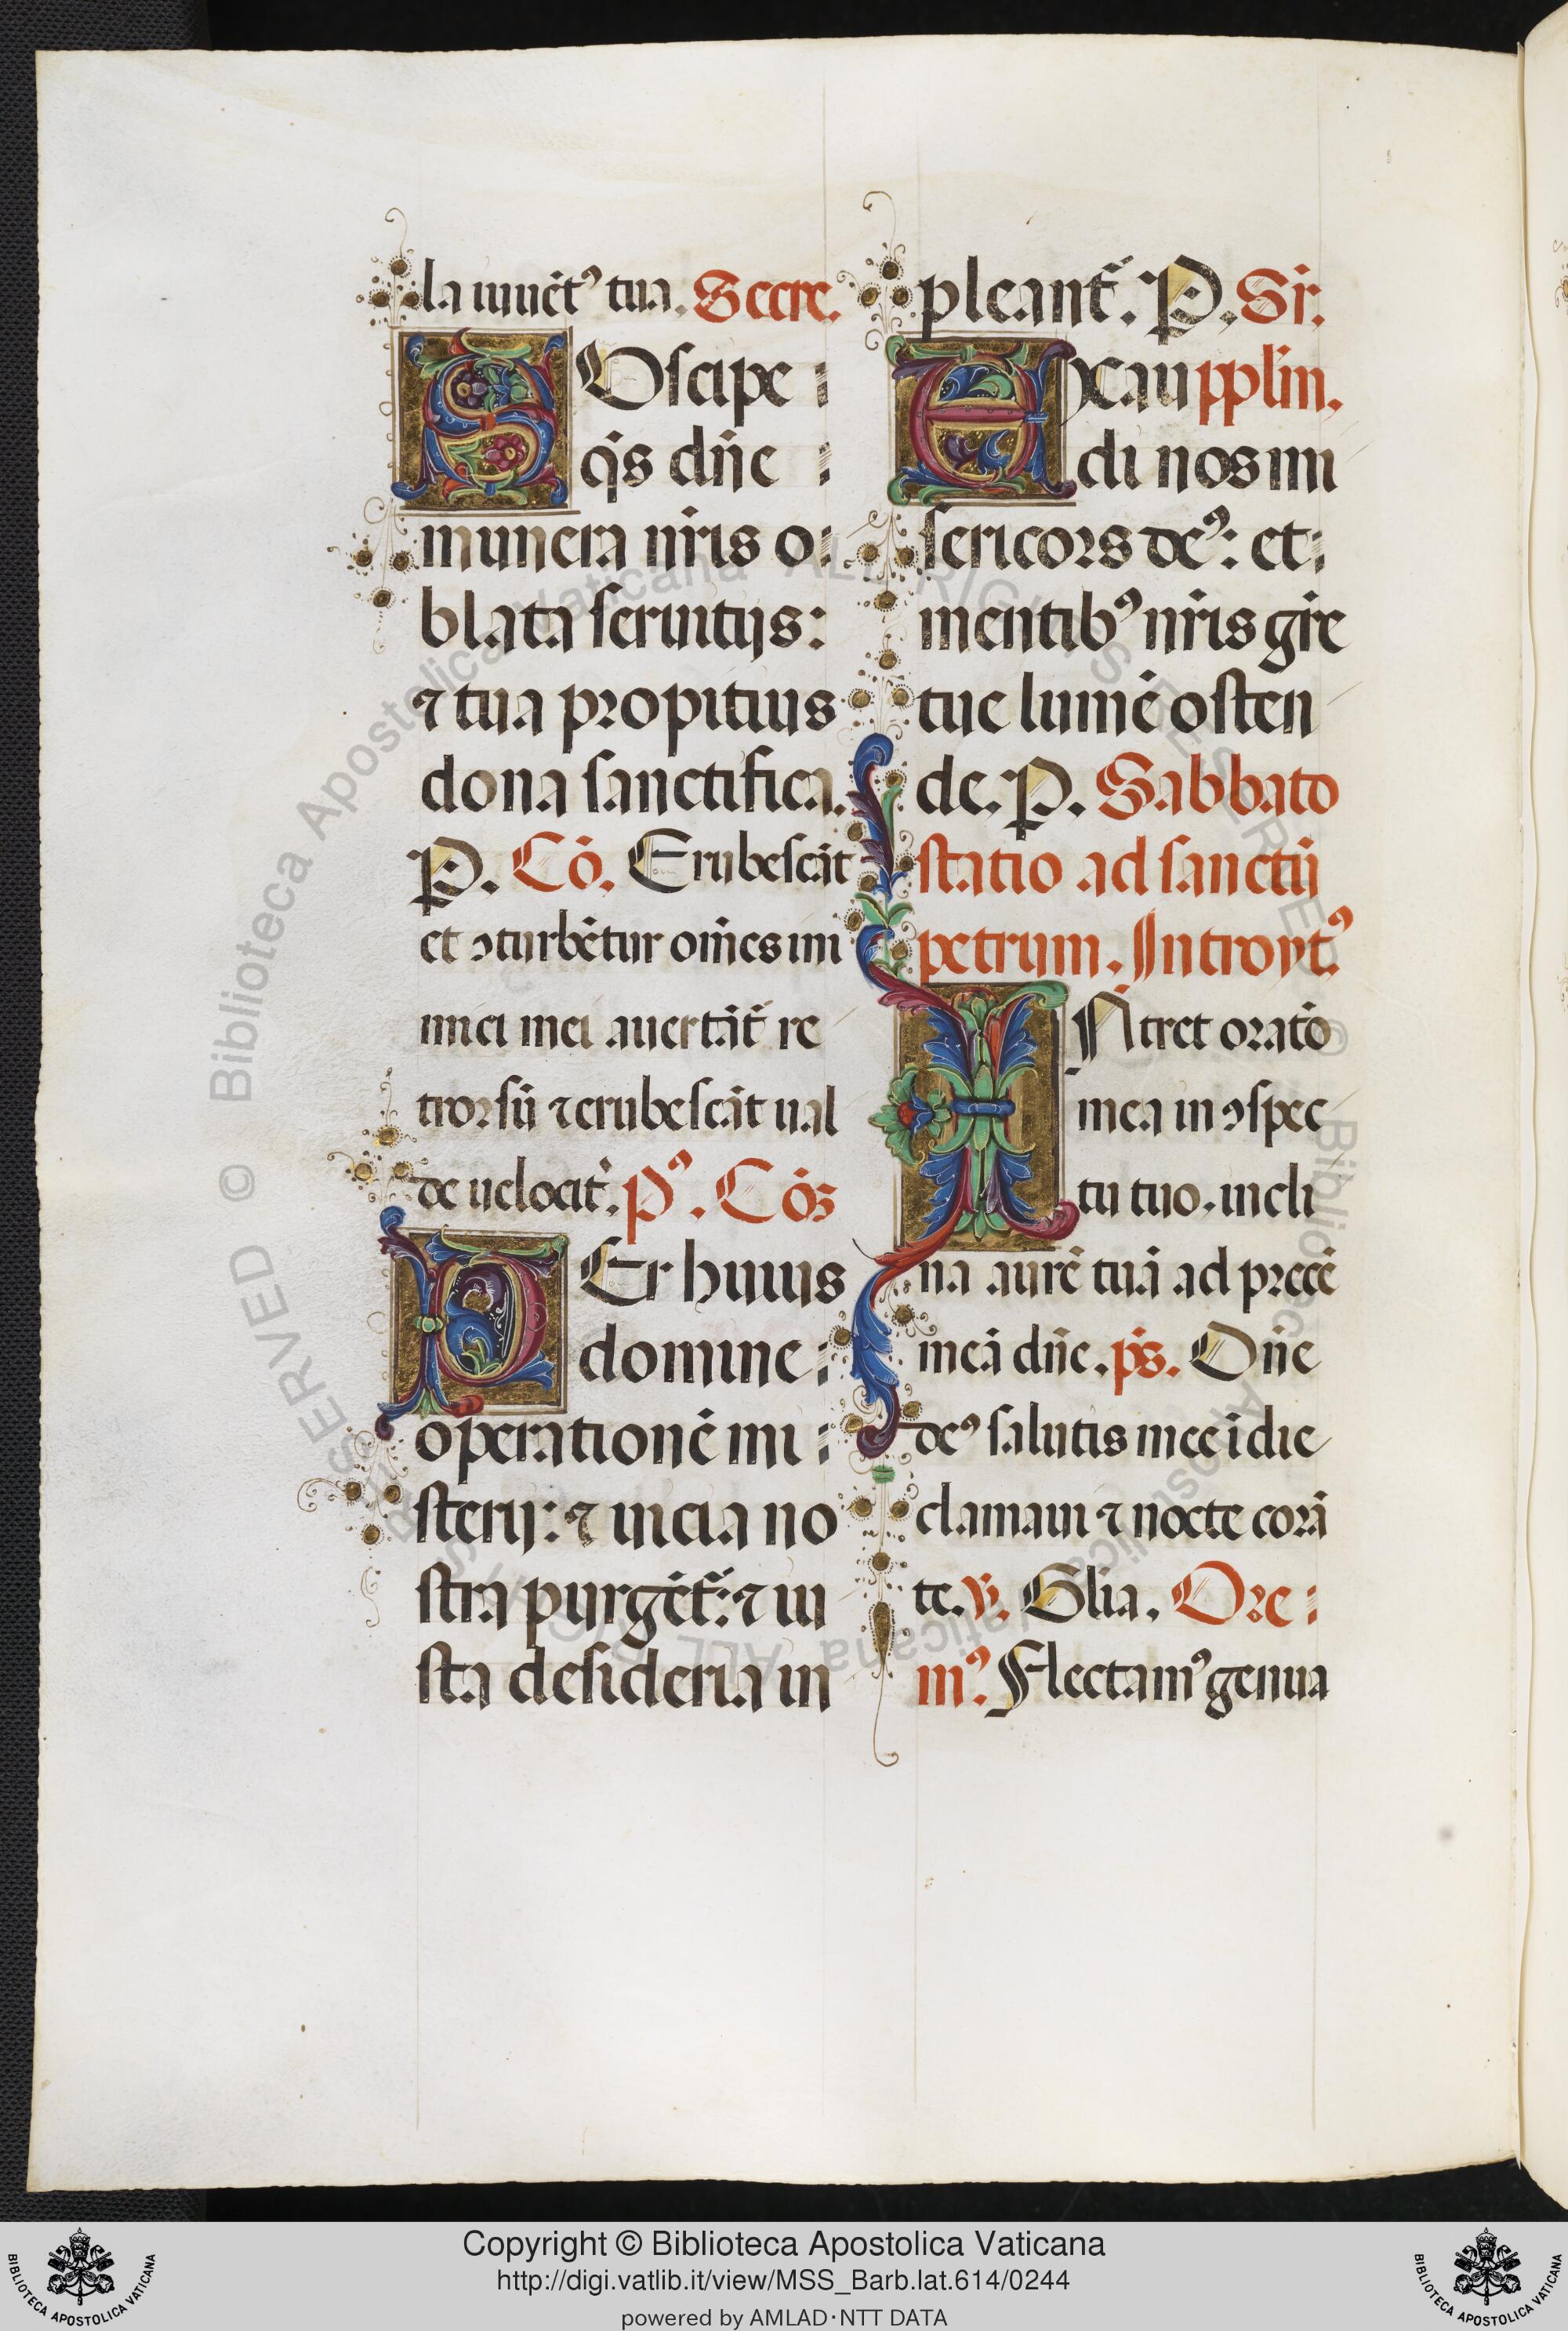 la iuuēt᾽ tua. Secre.
SUscipe
q̄s dn̄e
munera nr̄is o
blata seruitijs:
⁊ tua propitius
dona sanctifica.
P. Cō. Erubescāt
et ꝯturbētur om̄es ini
mici mei auertāt᷑ re
trorsū ⁊ erubescāt ual
de uelocit᷑. Pꝰ. Cōꝫ
PEr huius
domine
operationē mi
sterij: ⁊ uicia no
stra purgēt᷑: ⁊ iu
sta desideria in
pleant᷑. P. Sr̄.
EXau pplin.
di nos mi
sericors deꝰ: et
mentibꝰ nr̄is gr̄e
tue lumē osten
de. P. Sabbato
statio ad sanctū
petrum. Introytꝰ
INtret oratō
mea in ꝯspec
tu tuo. incli
na aurē tuā ad precē
meā dn̄e. p̄s. Dn̄e
deꝰ salutis mee ī die
clamaui ⁊ nocte corā
te. ℣. Gl̄ia. Ore
mꝰ. Flectamꝰ genua
© Biblioteca Apostolica Vaticana ALL RIGHTS RESERVED
© Biblioteca Apostolica Vaticana ALL RIGHTS RESERVED
Copyright © Biblioteca Apostolica Vaticana
http://digi.vatlib.it/view/MSS_Barb.lat.614/0244
powered by AMLAD·NTT DATA
BIBLIOTECA APOSTOLICA VATICANA
BIBLIOTECA APOSTOLICA VATICANA